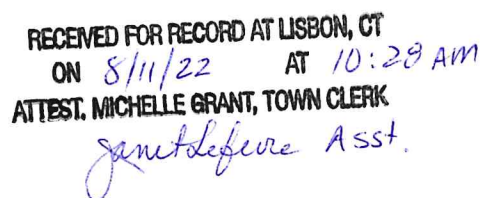 RECEIVED FOR RECORD AT LISBON, CT
ON 8/11/22 AT 10:28 AM
ATTEST. MICHELLE GRANT, TOWN CLERK
Janet Lefevre Asst.